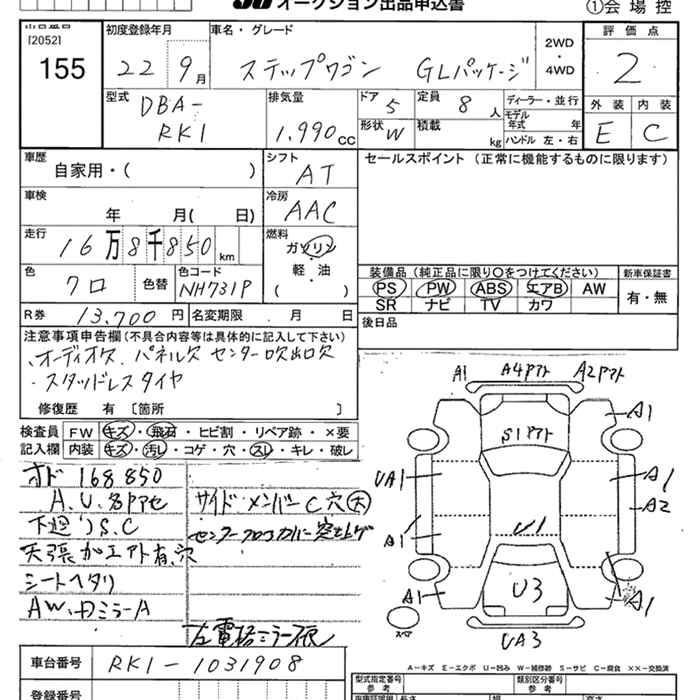 オークション出品申込書
①会場控
[2052]
155
初度登録年月
22 9月
車名・グレード
ステップワゴン GLパッケージ
2WD
4WD
評価点
2
型式
DBA-
RK1
排気量
1.990cc
ドア 5
形状 W
定員 8 人
積載 kg
ディーラー・並行
モデル年式 年
ハンドル 左・右
外装 内装
E C
車歴
自家用・( )
シフト
AT
セールスポイント(正常に機能するものに限ります)
車検
年 月( 日)
冷房
AAC
走行
16万8千850km
燃料
ガソリン
軽・油
( )
色
クロ
色替
色コード
NH731P
装備品(純正品に限り○をつけてください)
新車保証書
PS PW ABS エアB AW
SR ナビ TV カワ
有・無
R券
13,700円
名変期限 月 日
後日品
注意事項申告欄(不具合内容等は具体的に記入して下さい)
・オーディオ欠 パネル欠 センター吹出口欠
・スタッドレスタイヤ
修復歴 有〔箇所 〕
検査員
記入欄
FW キズ・飛石・ヒビ割・リペア跡・×要
内装 キズ・汚レ・コゲ・穴・スレ・キレ・破レ
オド 168850
A.U.各アセ
下廻りS.C
天張加工アト有、穴
シートヘタリ
AW、Dミラー A
サイドメンバーC穴(大)
左電格ミラー不良
A1
A4アト
A2アト
A1
S1アト
UA1
A1
A2
A1
U1
A1
U3
A1
UA3
スペア
A-キズ E-エクボ U-凹み W-補修跡 S-サビ C-腐食 ××-交換済
車台番号
RK1-1031908
登録番号
型式指定番号
参考
類別区分番号
参考